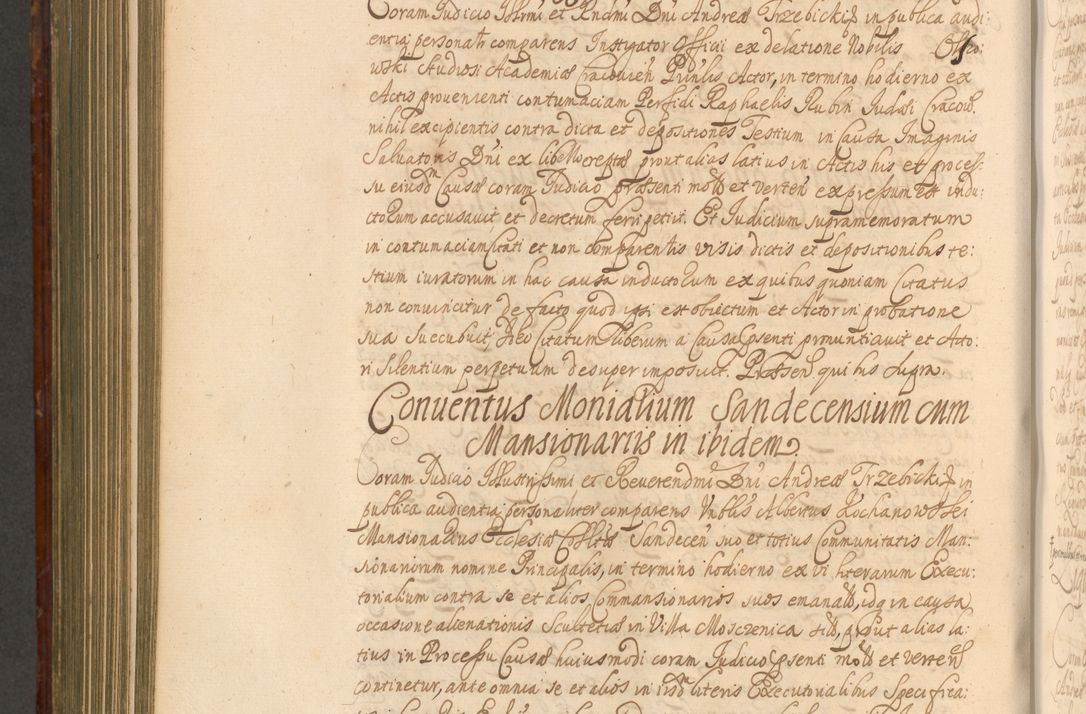 Coram Iudicio Illrmi et Rndmi Dni Andreæ Trzebicki & in publica audi:
entia personalr comparens Instigator Officii ex delatione Nobilis
wski Studiosi Academiæ Cracovien Prinlis Actor, in termino hodierno ex
Actis provenienti contumaciam Perfidi Raphaelis Rubin Iudæi Cracov.
nihil excipientis contra dicta et depositiones Testium in Causa Imaginis
Salvatoris Dni ex libello ereptæ prout alias latius in Actis his et proces:
su eiusdm Causæ coram Iudicio præsenti mots et verten expressum est indu:
ctorum accusavit et decretum ferri petivit. Et Iudicium supramemoratum
in contumaciam Citati et non comparentis visis dictis et depositionibus te:
stium iuratorum in hac causa inductorum ex quibus quoniam Citatus
non convincitur de facto quod ipsi est obiectum et Actor in probatione
sua succubuit, Ideo Citatum liberum a Causa psenti pronuntiavit et Acto:
ri Silentium perpetuum desuper imposuit. Præsen qui his supra.
Conventus Monialium Sandecensium cum
Mansionariis in ibidem.
Coram Iudicio Illustrissimi et Reverendmi Dni Andreæ Trzebicki & in
publica audientia personaliter comparens Vnblis Albertus Kochanowski
Mansionarius Ecclesiæ Colltæ Sandecen suo et totius Communitatis Man:
sionariorum nomine Principalis, in termino hodierno ex vi literarum Execu:
torialium contra se et alios Commansionarios suos emanats, idq in causa
occasione alienationis Scultetiæ in Villa Mosczenica prout alias la:
tius in Processu Causæ huiusmodi coram Iudicio psenti mots et verten
continetur, ante omnia se et alios in iisd literis Executorialibus Specifica: